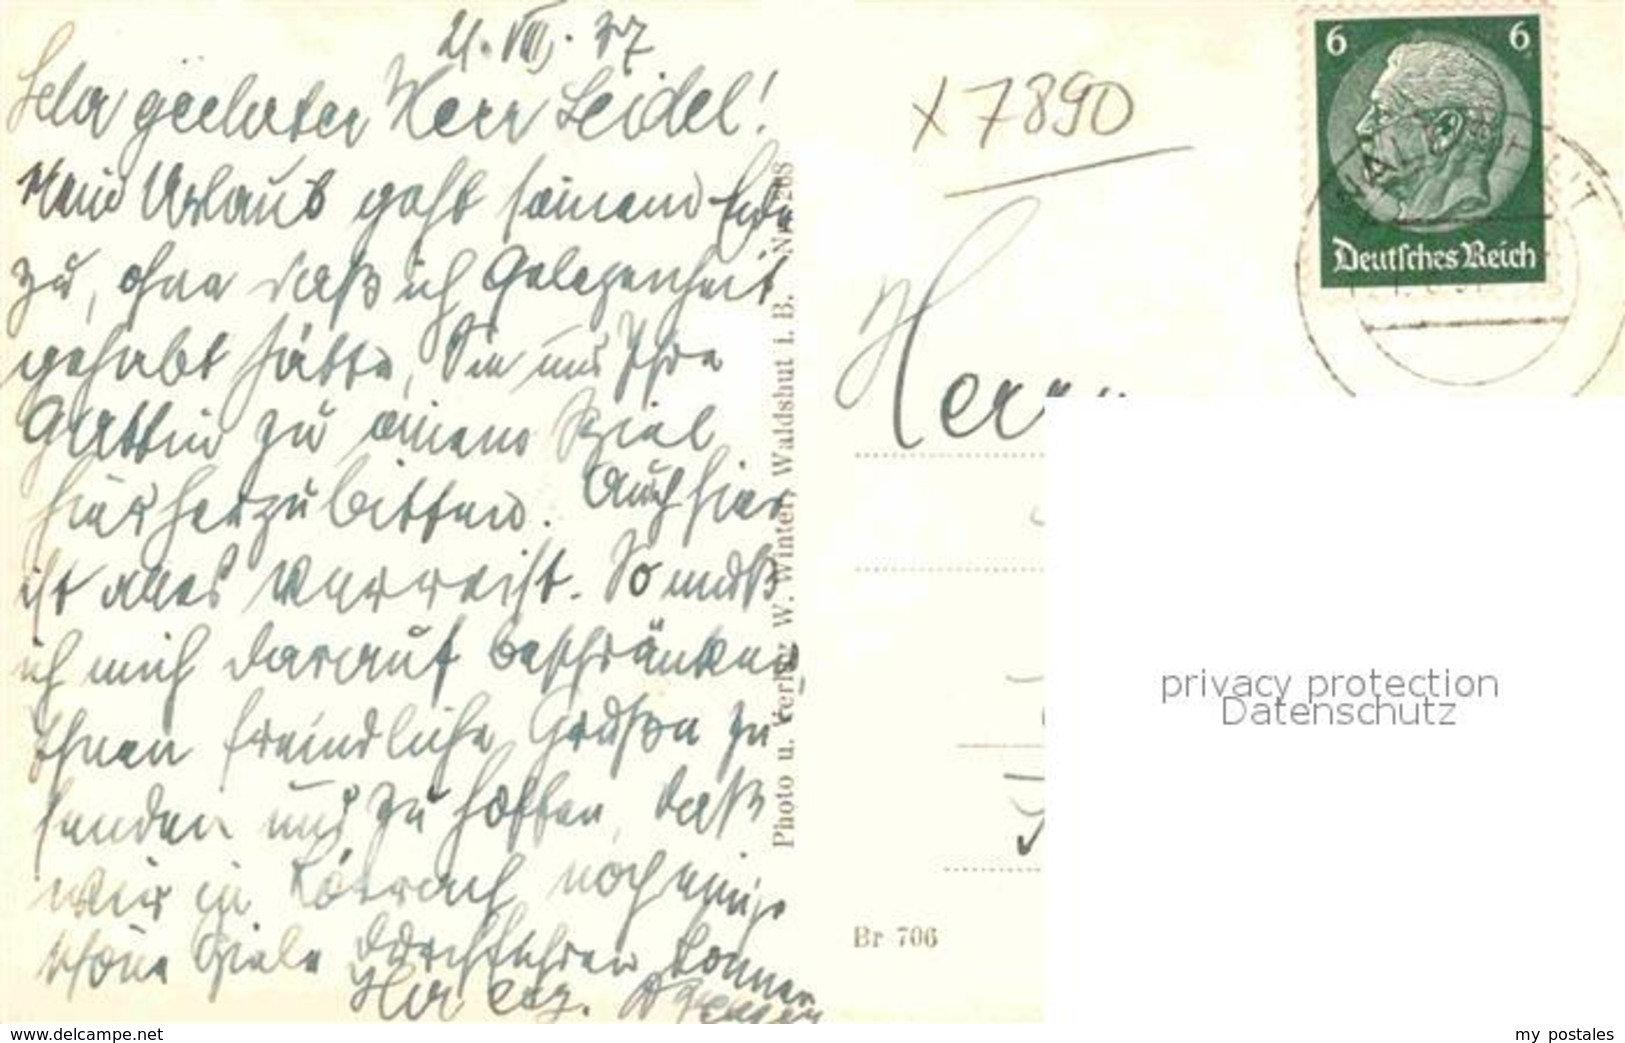 21. VIII. 37
Sehr geehrter Herr Seidel!
Mein Urlaub geht seinem Ende
zu, ohne daß ich Gelegenheit
gehabt hätte, Sie und Ihre
Gattin zu einem Spiel
hierherzubitten. Auch hier
ist alles verreist. So muß
ich mich darauf beschränken,
Ihnen freundliche Grüße zu
senden und zu hoffen, daß
wir in Lörrach noch einige
schöne Spiele durchführen können
Ihr erg.
Photo u. Verlag W. Winter, Waldshut i. B.
x 7890
6 6
Deutsches Reich
WALDSHUT
Herrn
Br 706
privacy protection
Datenschutz
www.delcampe.net
my postales